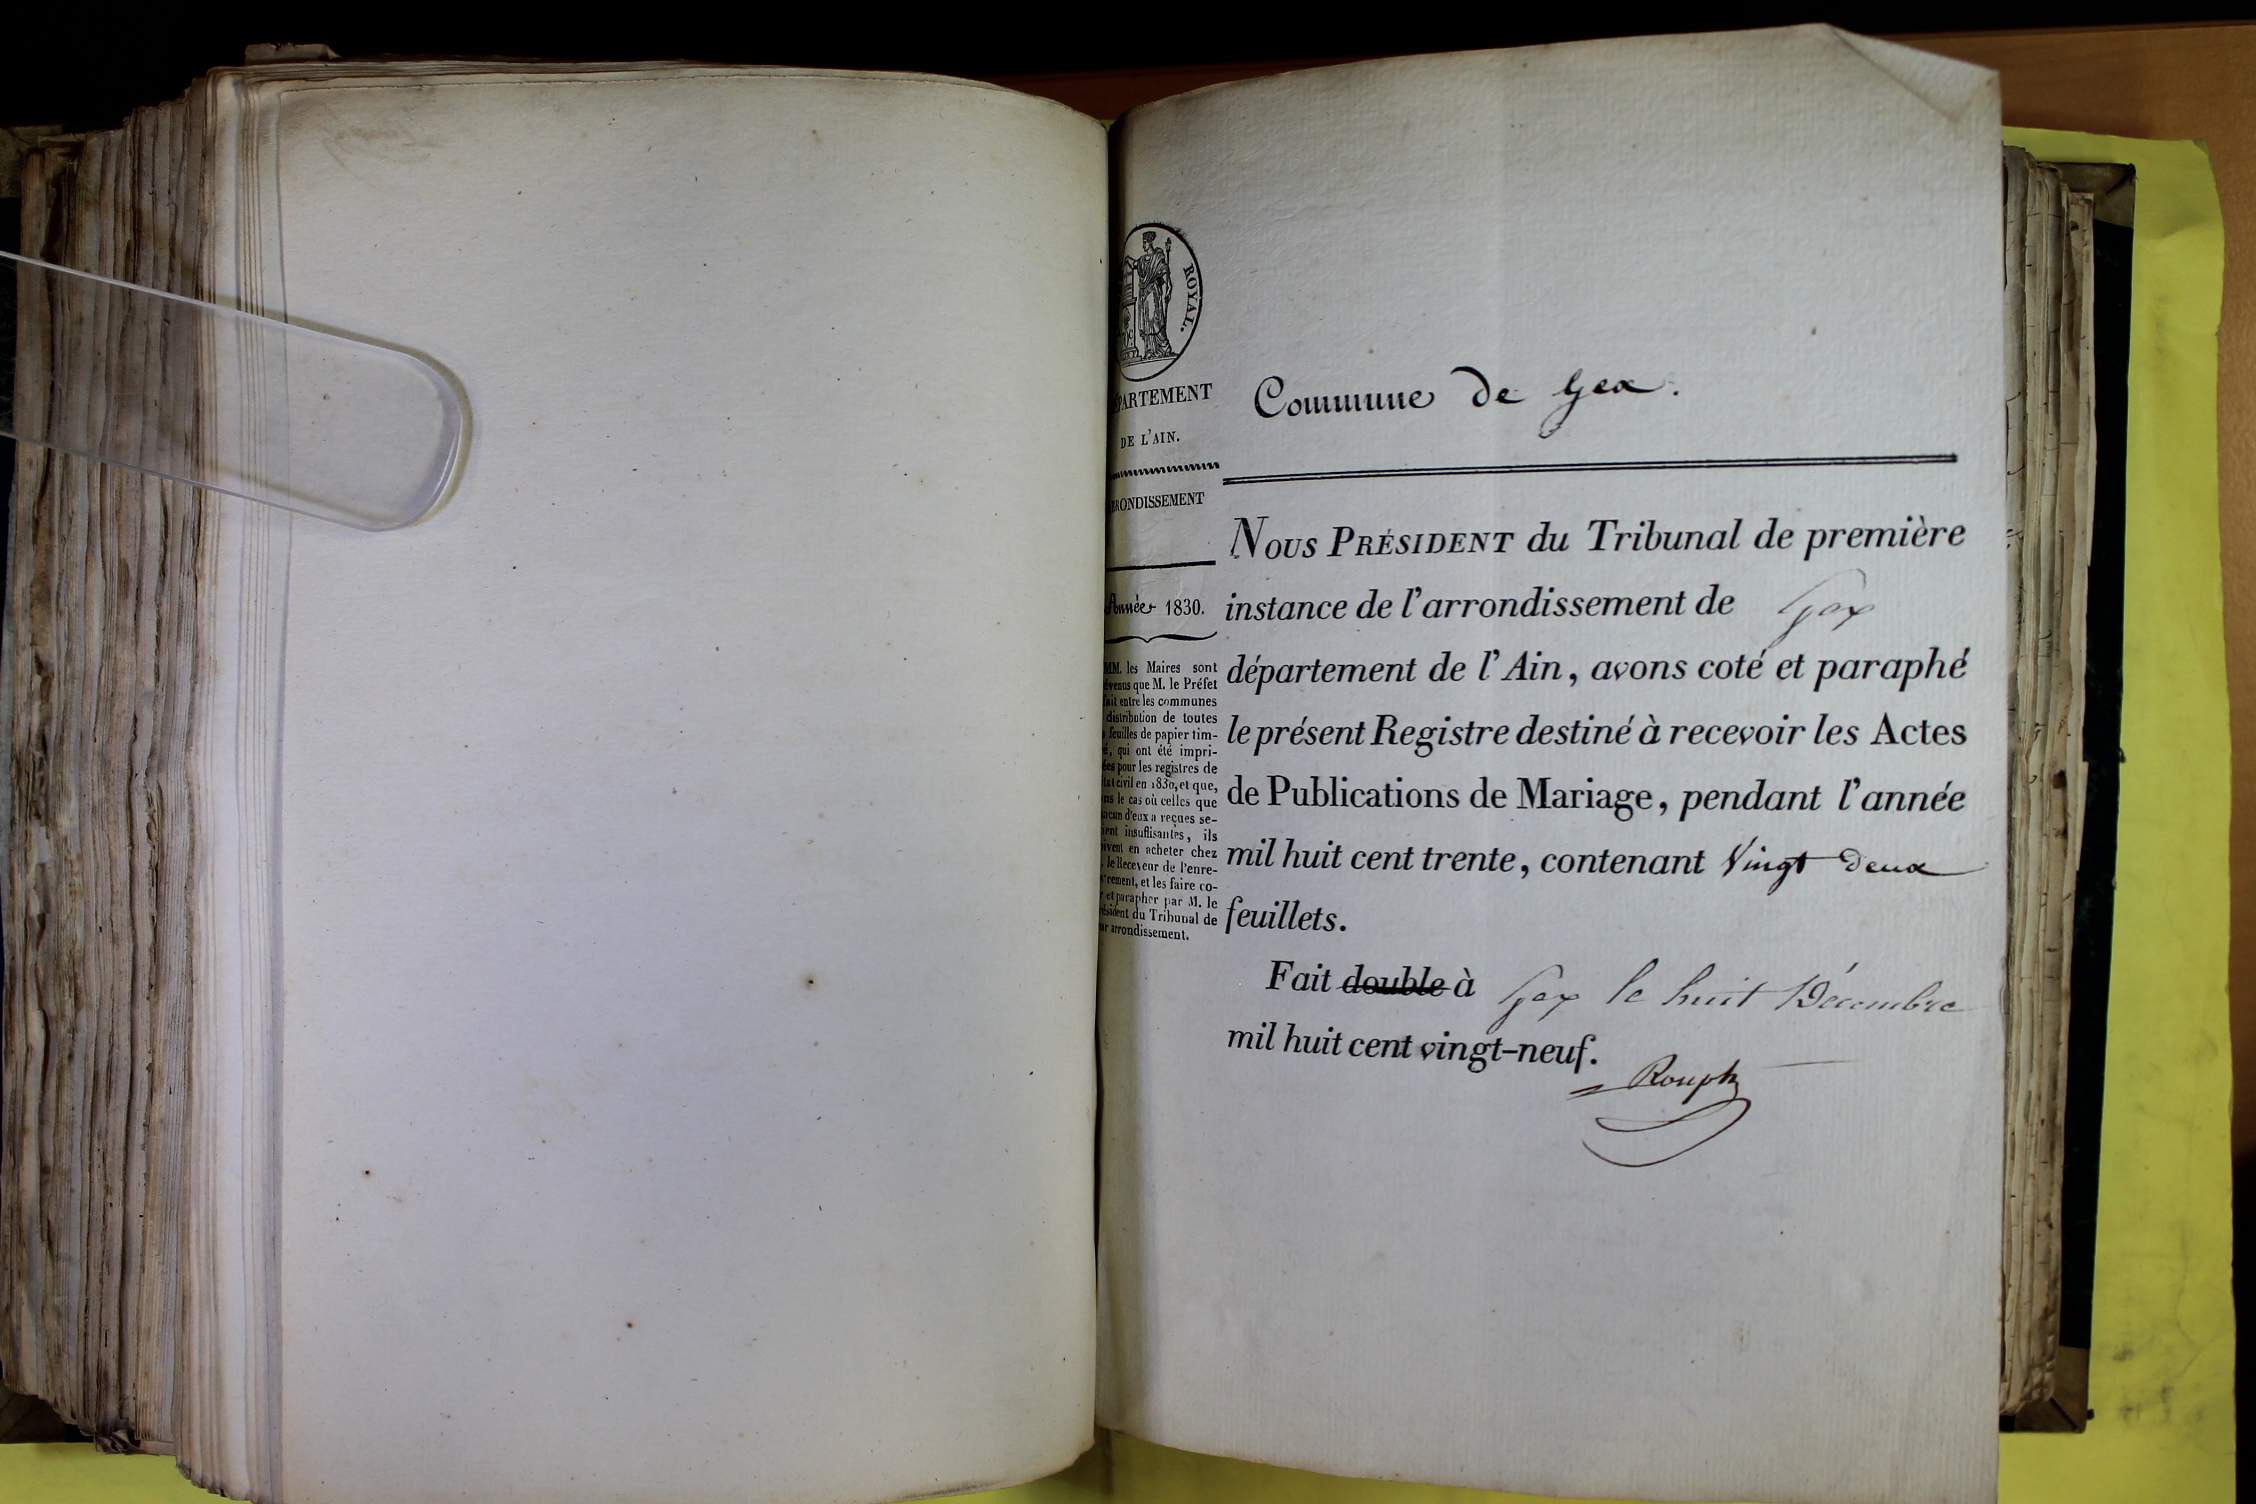 ROYAL.
PARTEMENT
DE L'AIN.
RONDISSEMENT
Année 1830.
MM. les Maires sont
venus que M. le Préfet
fait entre les communes
distribution de toutes
feuilles de papier tim-
, qui ont été impri-
pour les registres de
civil en 1830, et que,
le cas où celles que
d'eux a reçues se-
insuffisantes, ils
en acheter chez
le Receveur de l'enre-
, et les faire co-
et parapher par M. le
du Tribunal de
arrondissement.
Commune de Gex.
NOUS PRÉSIDENT du Tribunal de première
instance de l'arrondissement de Gex
département de l'Ain, avons coté et paraphé
le présent Registre destiné à recevoir les Actes
de Publications de Mariage, pendant l'année
mil huit cent trente, contenant Vingt deux
feuillets.
Fait double à Gex le huit Décembre
mil huit cent vingt-neuf.
Rouph